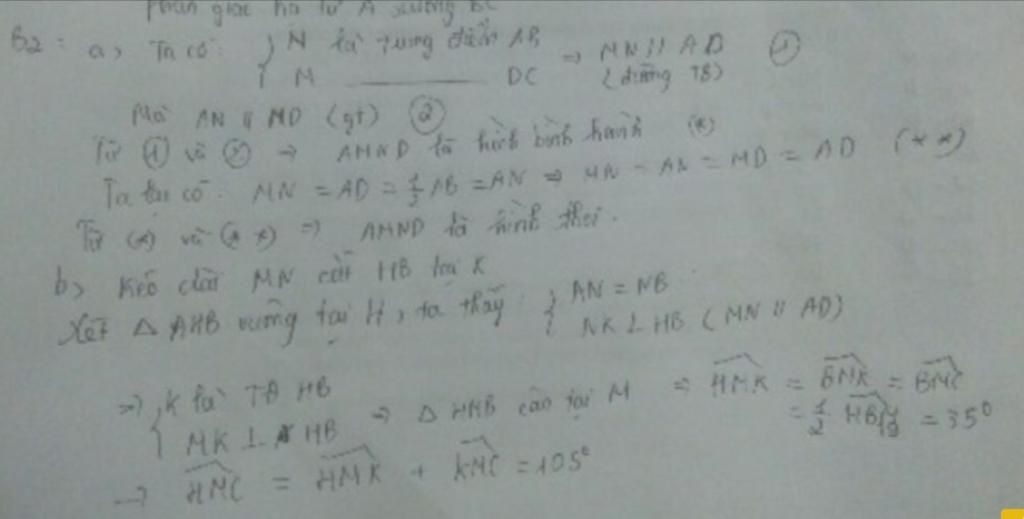 phân giác hạ từ A xuống BC
B2: a, Ta có: { N là trung điểm AB
{ M ——— DC
⇒ MN // AD (đường TB) ①
Mà AN // MD (gt) ②
Từ ① và ② ⇒ AMND là hình bình hành (*)
Ta lại có: MN = AD = 1/2 AB = AN ⇒ MN = AN = MD = AD (**)
Từ (*) và (**) ⇒ AMND là hình thoi.
b, Kéo dài MN cắt HB tại K
Xét △ AHB vuông tại H, ta thấy: { AN = NB
{ NK ⊥ HB (MN // AD)
⇒ { K là TĐ HB
{ MK ⊥ HB
⇒ △ HMB cân tại M ⇒ HMK = BMK = BMC
= 1/2 = 35°
→ HMC = HMK + KMC = 105°